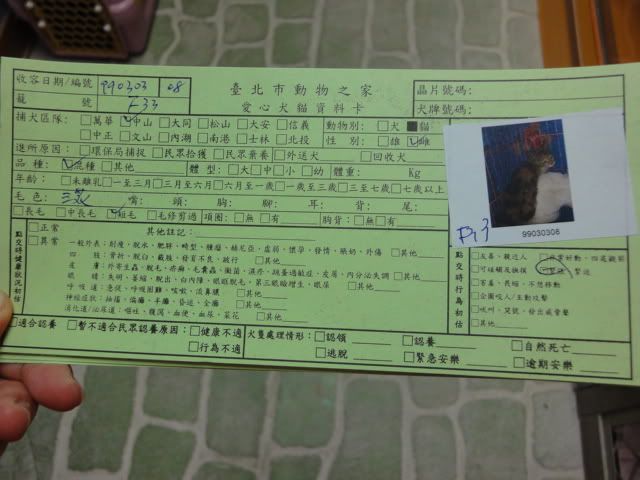 收容日期/編號 990303 08
籠 號 F33
臺北市動物之家
愛心犬貓資料卡
晶片號碼:
犬牌號碼:
捕犬區隊: □萬華 ☑中山 □大同 □松山 □大安 □信義 動物別: □犬 ■貓
□中正 □文山 □內湖 □南港 □士林 □北投 性 別: □雄 ☑雌
進所原因: □環保局捕捉 □民眾拾獲 □民眾棄養 □外送犬 □回收犬
品 種: ☑混種 □其他 體 型: □大 □中 □小 □幼 體重: Kg
年齡: □未離乳 □一至三月 □三至六月 □六月至一歲 □一歲至三歲 □三至七歲 □七歲以上
毛 色: 三花 嘴: 頭: 胸: 腳: 耳: 背: 尾:
□長毛 □中長毛 ☑短毛 □毛修剪過 項圈: □無 □有 胸背: □無 □有
點交時健康狀況初估
□正常
□異常
其他註記:
一般外表: 削瘦、脫水、肥胖、畸型、腫瘤、赫尼亞、虛弱、懷孕、發情、脹奶、外傷 □其他
四 肢: 骨折、脫臼、截肢、發育不良、跛行 □其他
皮 膚: 外寄生蟲、脫毛、疥癬、毛囊蟲、黴菌、濕疹、跳蚤過敏症、皮屑、內分泌失調 □其他
眼 睛: 失明、萎縮、脫出、白內障、眼瞼脫毛、第三眼瞼增生、眼屎 □其他
呼 吸 道: 急促、呼吸困難、咳嗽、流鼻膿 □其他
神經症狀: 抽搐、偏癱、半癱、昏迷、全癱 □其他
消化道/泌尿道: 嘔吐、腹瀉、血便、血尿、菜花 □其他
F33
99030308
點交時行為初估
□友善、親近人
□可碰觸及撫摸
□害羞、畏縮、不想移動
□企圖咬人/主動攻擊
□其他
□適合認養 □暫不適合民眾認養原因: □健康不適
□行為不適
犬隻處理情形: □認領 □認養 □自然死亡
□逃脫 □緊急安樂 □逾期安樂